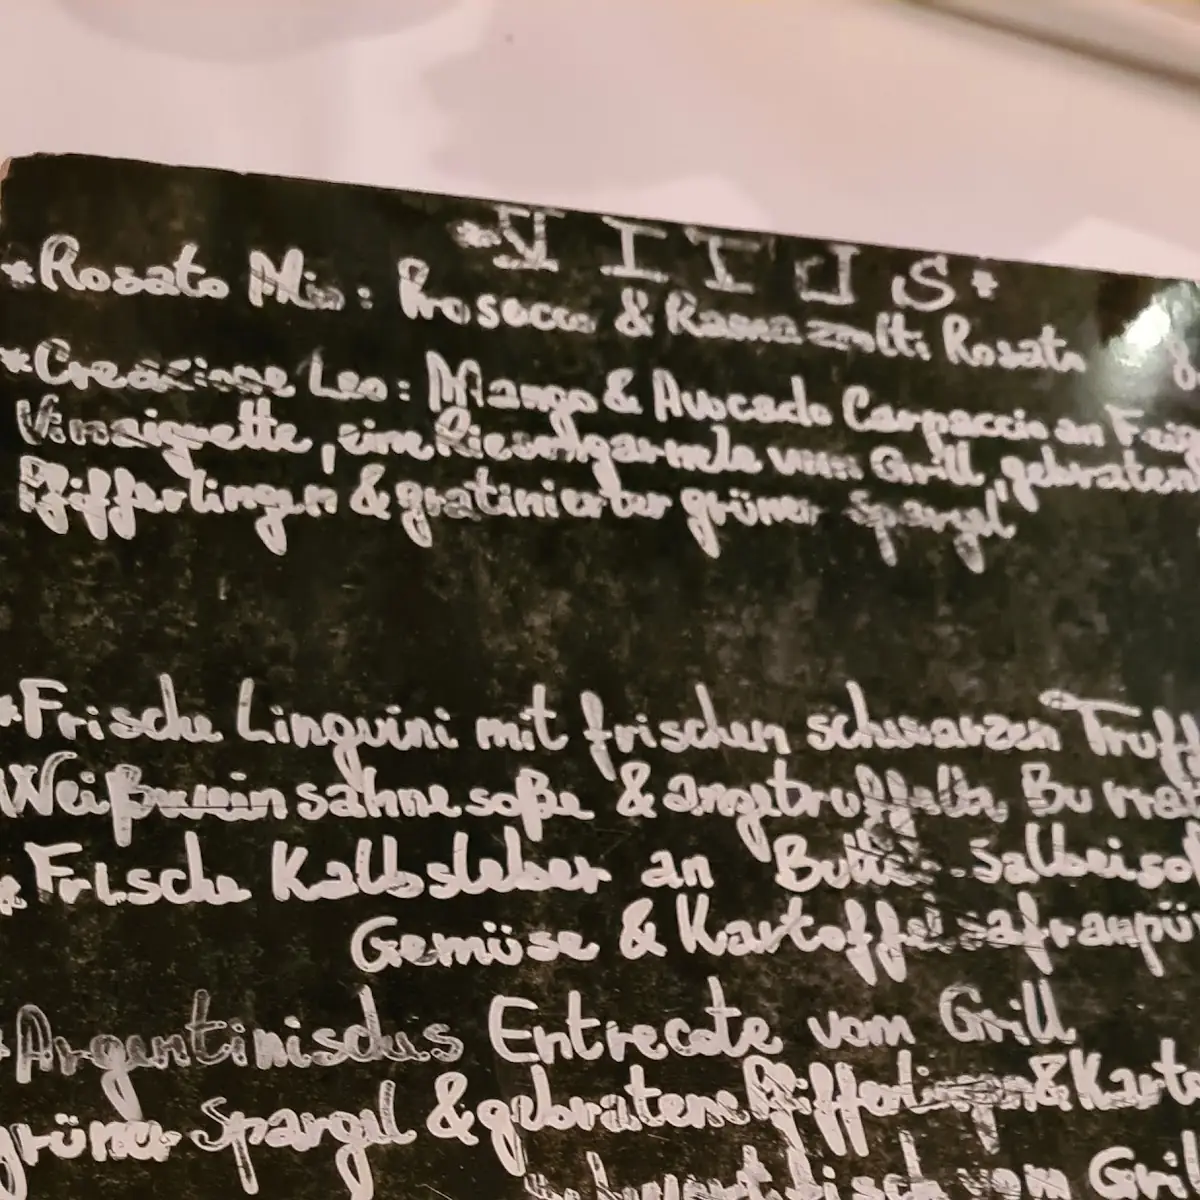 *VITUS*
*Rosato Mio: Prosecco & Ramazzotti Rosato
*Creazione Leo: Mango & Avocado Carpaccio an Feig
Vinaigrette, eine Riesengarnele vom Grill, gebraten
Pfifferlingen & gratinierter grüner Spargel
*Frische Linguini mit frischen schwarzen Trüff
Weißweinsahnesoße & angetrüffelte Burrat
*Frische Kalbsleber an Butter-Salbeisoß
Gemüse & Kartoffelsafranpü
*Argentinisches Entrecote vom Grill
grüner Spargel & gebratene Pfifferlingen & Karto
vom Grill